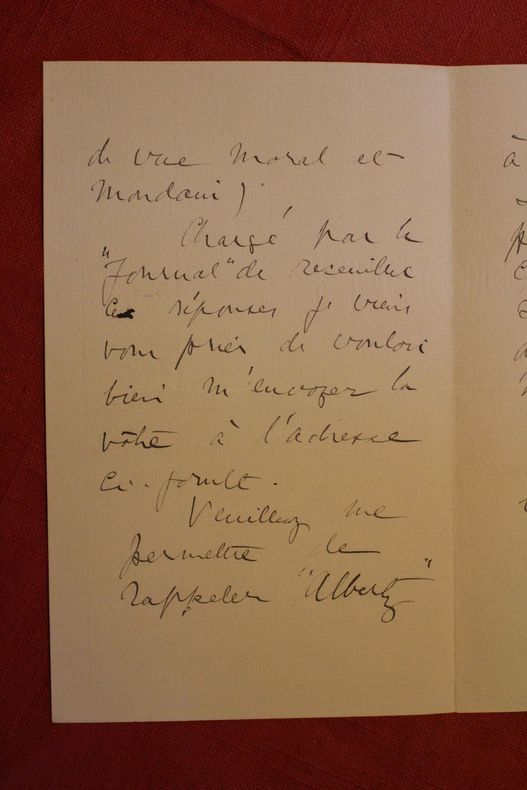 de vue moral et
mondain).
Chargé par le
"Journal" de recueillir
ces réponses je viens
vous prier de vouloir
bien m'envoyer la
vôtre à l'adresse
ci-jointe.
Veuillez me
permettre de
rappeler "Albert"
à